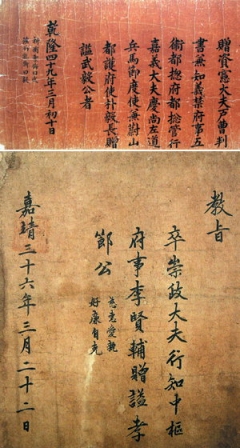 贈資憲大夫兵曹判
書兼知義禁府事五
衛都摠府都摠管行
嘉義大夫慶尚左道
兵馬節度使兼蔚山
都護府使朴毅長贈
諡武毅公者
乾隆四十九年三月初十
教旨
卒崇政大夫行知中樞
府事李賢輔贈諡孝
節公
慈惠愛親
好廉自克
嘉靖三十六年三月二十二日